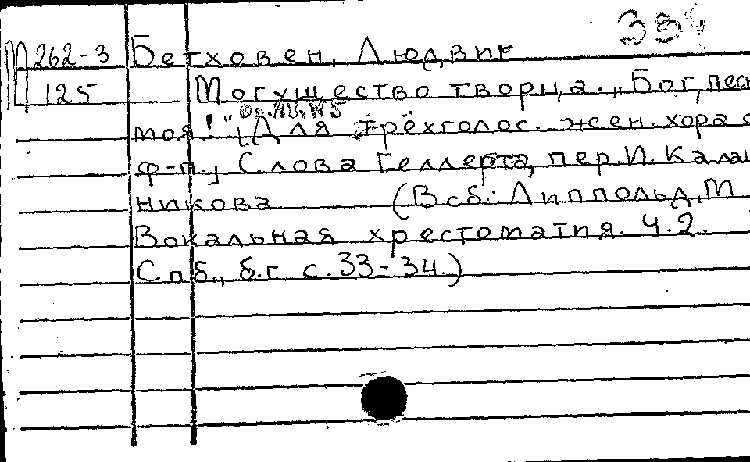 П 262-3 Бетховен, Людвиг
125 Могущество творца. „Бог, пес
моя!" [Для трёхголос. жен. хора с
ф-п., Слова Геллерта, пер. И. Кала
никова (В сб.: Липпольд, М
Вокальная хрестоматия. Ч. 2.
Спб., б.г. с. 33-34.)